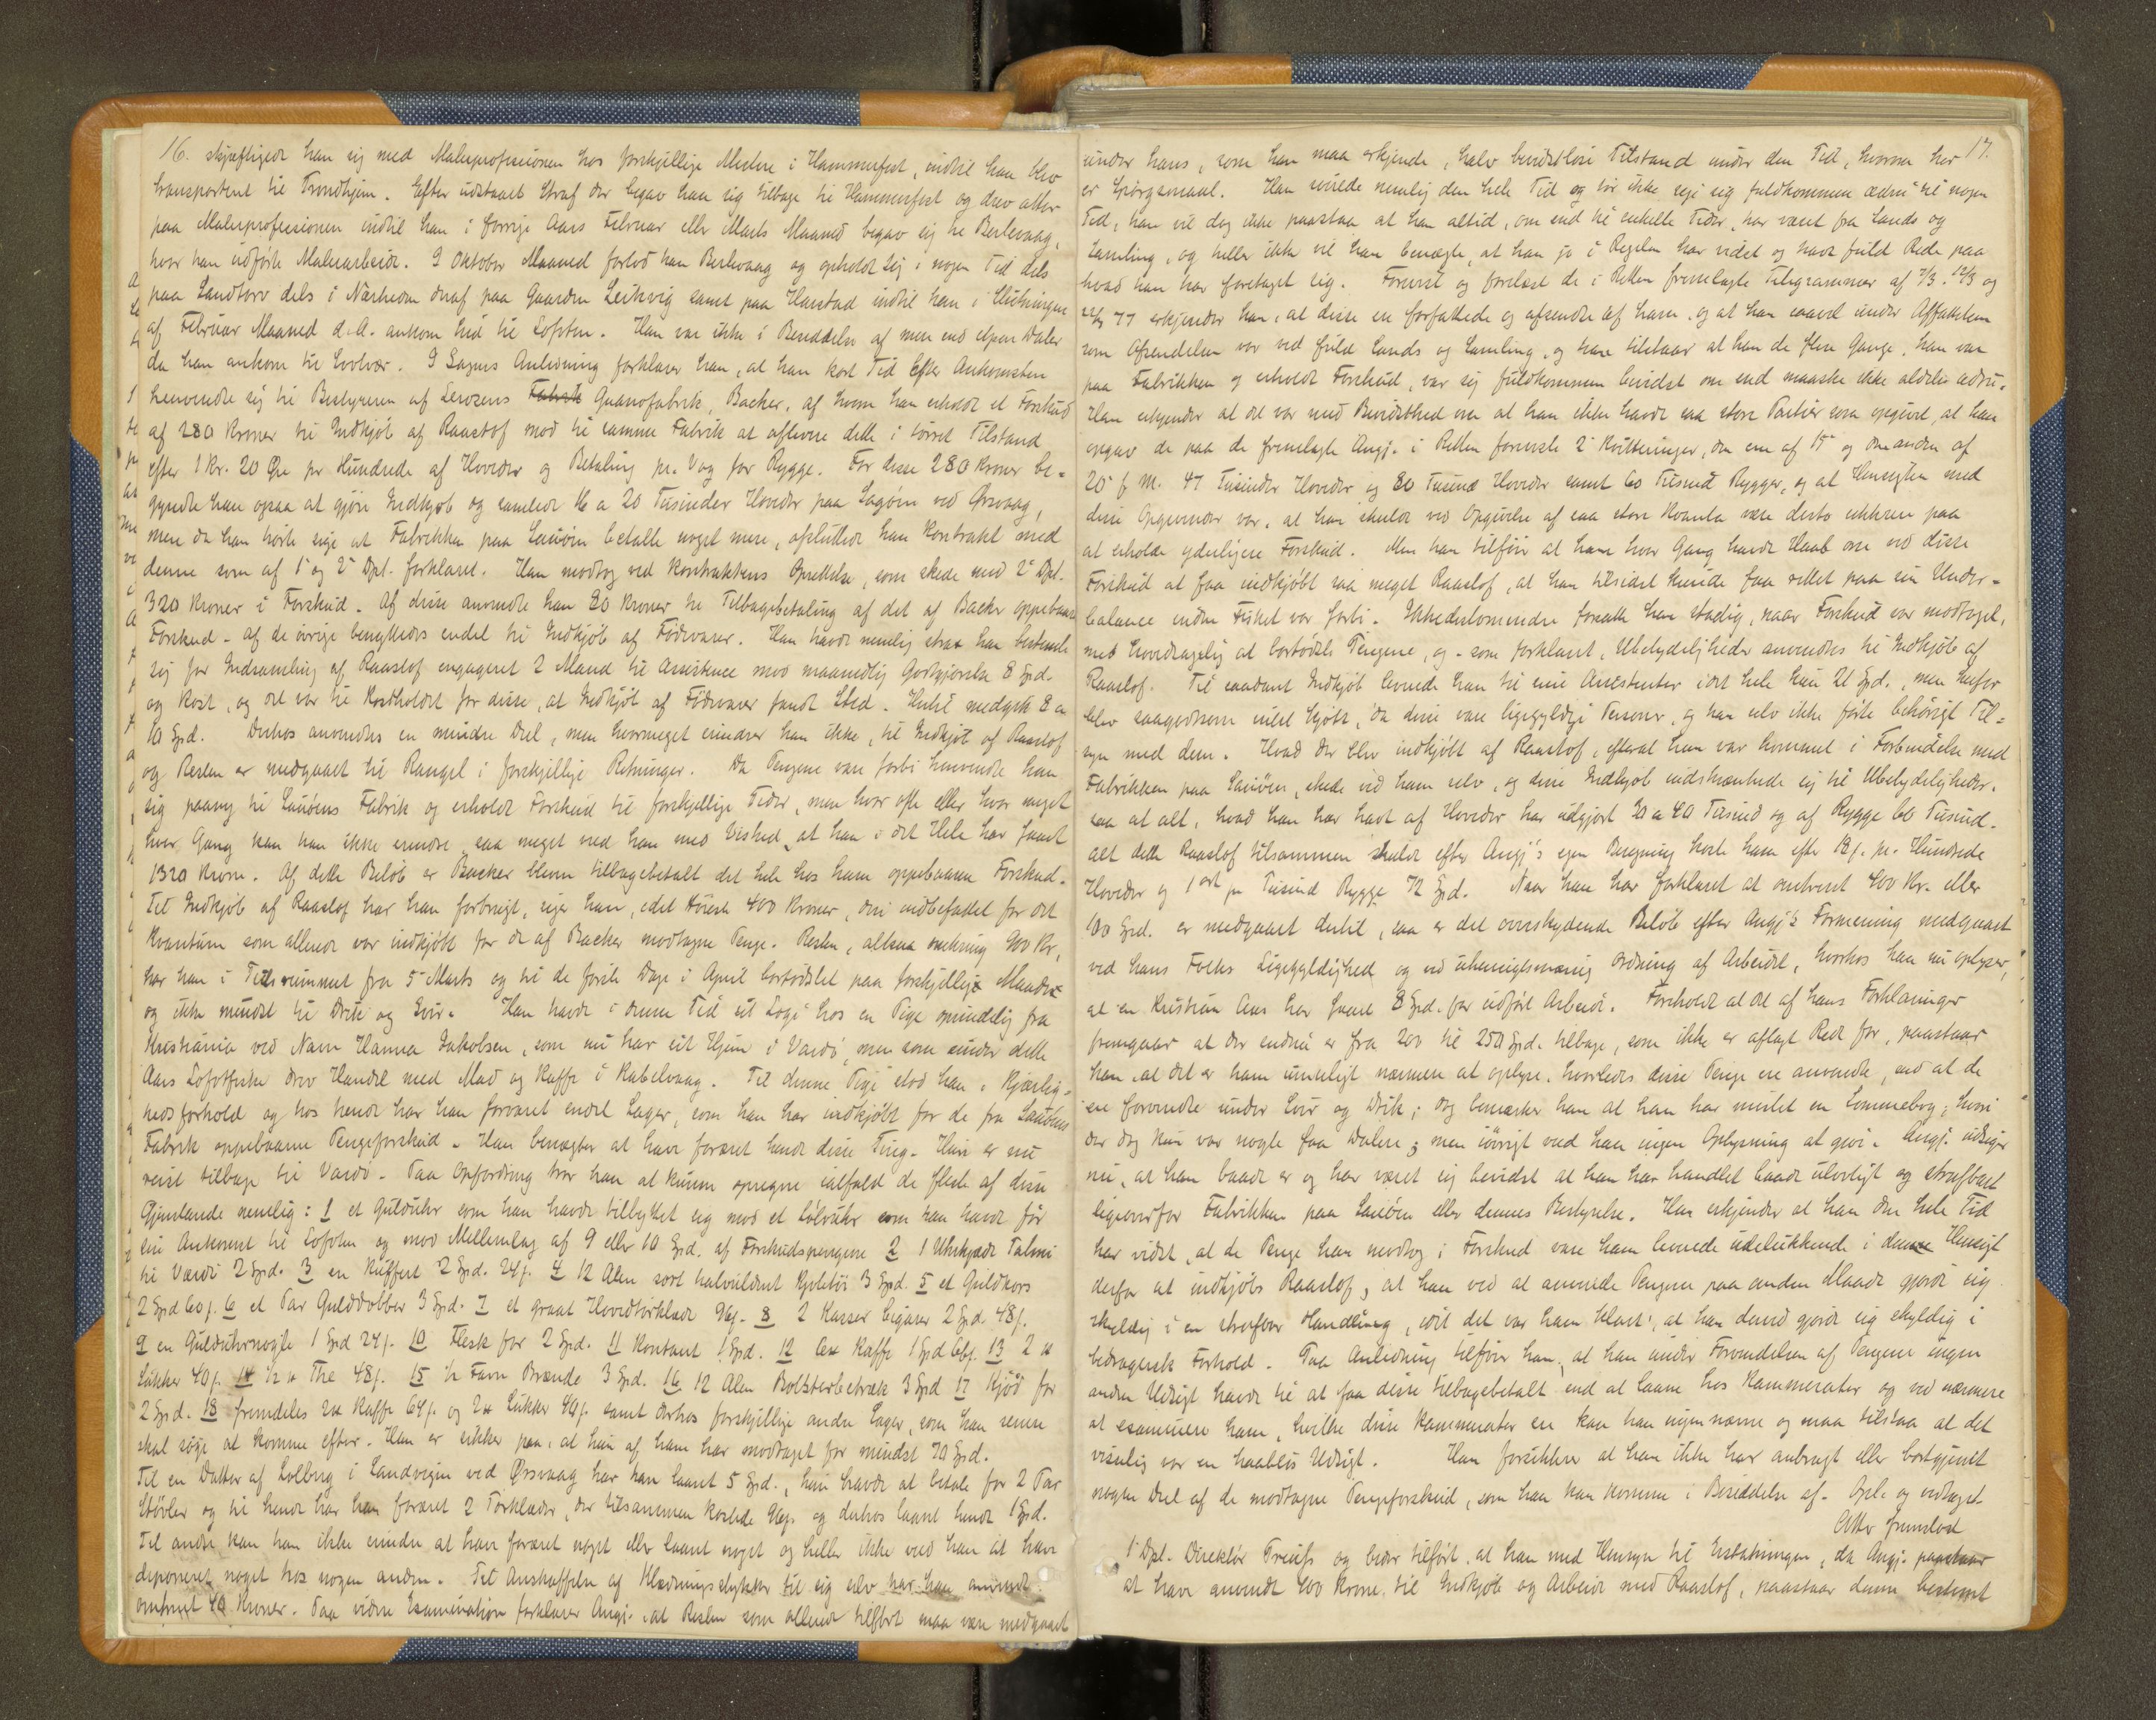 16.
skjæftigede han sig med Malerprofessionen hos forskjellige Mestere i Hammerfest, indtil han blev
transporteret til Trondhjem. Efter udstaaet Straf der begav han sig tilbage til Hammerfest og drev atter
paa Malerprofessionen indtil han i forrige Aars Februar eller Marts Maaned begav sig til Berlevaag,
hvor han udførte Malerarbeide. I Oktober Maaned forlod han Berlevaag og opholdt sig i nogen Tid dels
paa Sandtorv dels i Nærheden deraf paa Gaarden Leikvig samt paa Harstad indtil han i Slutningen
af Februar Maaned d. A. ankom hid til Lofoten. Han var ikke i Besiddelse af mere end et par Daler
da han ankom til Svolvær. I Sagens Anledning forklarer han, at han kort Tid efter Ankomsten
henvendte sig til Bestyreren af Lerosens Fabrik Guanofabrik, Backer, af hvem han erholdt et Forskud
af 280 Kroner til Indkjøb af Raastof mod til samme Fabrik at aflevere dette i tørret Tilstand
efter 1 Kr. 20 Øre pr Hundrede af Hoveder og Betaling pr. Vog for Rygge. For disse 280 Kroner be-
gyndte han ogsaa at gjøre Indkjøb og samlede 16 a 20 Tusinder Hoveder paa Lagøen ved Ørsvaag,
men da han hørte sige at Fabrikken paa Sauøen betalte noget mere, afsluttede han Kontrakt med
denne som af 1ste og 2det Dpt. forklaret. Han modtog ved Kontraktens Oprettelse, som skede med 2det Dpt.
320 Kroner i Forskud. Af disse anvendte han 80 Kroner til Tilbagebetaling af det af Backer oppebaarne
Forskud - af de øvrige benyttedes endel til Indkjøb af Fødevarer. Han havde nemlig strax han bestemte
sig for Indsamling af Raastof engageret 2 Mand til Assistence mod maanedlig Godtgjørelse 8 Spd.
og Kost, og det var til Kostholdet for disse, at Indkjøb af Fødevarer fandt Sted. Hertil medgik 8 a
10 Spd. Derhos anvendtes en mindre Del, men hvormeget erindrer han ikke, til Indkjøb af Raastof
og Resten er medgaaet til Rangel i forskjellige Retninger. Da Pengene vare forbi henvendte han
sig paany til Sauøens Fabrik og erholdt Forskud til forskjellige Tider, men hvor ofte eller hvor meget
hver Gang kan han ikke erindre, saa meget ved han med Vished, at han i det Hele har faaet
1320 Kroner. Af dette Beløb er Backer bleven tilbagebetalt det hele hos ham oppebaarne Forskud.
Til Indkjøb af Raastof har han forbrugt, siger han, idet Høieste 400 Kroner, deri indbefattet for det
Kvantum som allerede var indkjøbt for de af Backer modtagne Penge. Resten, altsaa omkring 900 Kr,
har han i Tidsrummet fra 5te Marts og til de første Dage i April bortødslet paa forskjellige Maader
og ikke mindst til Drik og Svir. Han havde i denne Tid sit Logi hos en Pige oprindelig fra
Kristiania ved Navn Hanna Jakobsen, som nu har sit Hjem i Vardø, men som under dette
Aars Lofotfiske drev Handel med Mad og Kaffe i Kabelvaag. Til denne Pige stod han i Kjærlig-
hedsforhold og hos hende har han foræret endel Sager, som han har indkjøbt for de fra Sauøens
Fabrik oppebaarne Pengeforskud. Han benægter at have foræret hende disse Ting. Hun er nu
reist tilbage til Vardø. Paa Opfordring tror han at kunne opregne ialfald de fleste af disse
Gjenstande nemlig: 1 et Gulduhr som han havde tilbyttet sig mod et Sølvuhr som han havde før
sin Ankomst til Lofoten og mod Mellemlag af 9 eller 10 Spd. af Forskudspengene 2 1 Uhrkjæde Talmi
til Værdi 2 Spd. 3 en Kuffert 2 Spd. 24 s. 4 12 Alen sort halvuldent Kjoletøi 3 Spd. 5 et Guldkors
2 Spd 60 s. 6 et Par Gulddobber 3 Spd. 7 et graat Hovedtørklæde 96 s. 8 2 Kasser Cigarer 2 Spd. 48 s.
9 en Gulduhrnøgle 1 Spd 24 s. 10 Flesk for 2 Spd. 11 Kontant 1 Spd. 12 6 ℔ Kaffe 1 Spd 6 s. 13 2 ℔
Sukker 40 s. 14 ½ ℔ The 48 s. 15 ½ Favn Brænde 3 Spd. 16 12 Alen Bolsterbetræk 3 Spd 17 Kjød for
2 Spd. 18 fremdeles 2 ℔ Kaffe 64 s. og 2 ℔ Sukker 40 s. samt derhos forskjellige andre Sager, som han senere
skal søge at komme efter. Han er sikker paa, at hun af ham har modtaget for mindst 70 Spd.
Til en Datter af Solberg i Sandvigen ved Ørsvaag har han laant 5 Spd., hun havde at betale for 2 Par
Støvler og til hende har han foræret 2 Tørklæder, der tilsammen kostede 96 s. og derhos laant hende 1 Spd.
Til andre kan han ikke erindre at have foræret noget eller laant noget og heller ikke ved han at have
deponeret noget hos nogen anden. Til Anskaffelse af Klædningsstykker til sig selv har han anvendt
omtrent 40 Kroner. Paa videre Examination forklarer Angj. at Resten som allerede tilført maa være medgaaet
17.
under hans, som han maa erkjende, halv bevidstløse Tilstand under den Tid, hvorom her
er Spørgsmaal. Han svirede nemlig den hele Tid og tør ikke sige sig fuldkommen ædru til nogen
Tid, han vil dog ikke paastaa at han altid, om end til enkelte Tider, har været fra Sands og
Samling, og heller ikke vil han benægte, at han jo i Regelen har vidst og havt fuld Rede paa
hvad han har foretaget sig. Forevist og forelæst de i Retten fremlagte Telegrammer af 7/3. 12/3 og
22/3 77 erkjender han, at disse ere forfattede og afsendte af ham, og at han saavel under Affattelsen
som Afsendelsen var ved fuld Sands og Samling, og han tilstaar at han de flere Gange, han var
paa Fabrikken og erholdt Forskud, var sig fuldkommen bevidst om end maaske ikke aldeles ædru.
Han erkjender at det var med Bevidsthed om at han ikke havde saa store Partier som opgivet, at han
opgav de paa de fremlagte Angj. i Retten foreviste 2de Kvitteringer, den ene af 15de og den anden af
20de f. M. 47 Tusinder Hoveder og 80 Tusind Hoveder samt 60 Tusind Rygge, og at Hensigten med
disse Opgivender var, at han skulde ved Opgivelse af saa store Kvanta være desto sikkrere paa
at erholde yderligere Forskud. Men han tilføier at ham hver Gang havde Haab om ved disse
Forskud at faa indkjøbt saa meget Raastof, at han tilsidst kunde faa rettet paa sin Under-
balance inden Fisket var forbi. Ikkedestomindre forsatte han stadig, naar Forskud var modtaget,
med hovedsagelig at bortødsle Pengene, og - som forklaret, Ubetydeligheder anvendtes til Indkjøb af
Raastof. Til saadant Indkjøb leverede han til sine Assistenter idet hele kun 21 Spd., men herfor
blev saagodtsom intet kjøbt, da disse vare ligegyldige Personer, og han selv ikke førte behørigt Til-
syn med dem. Hvad der blev indkjøbt af Raastof, efterat han var kommet i Forbindelse med
Fabrikken paa Sauøen, skede ved ham selv, og disse Indkjøb indskrænkede sig til Ubetydeligheder.
saa at alt, hvad han har havt af Hoveder har udgjort 30 a 40 Tusind og af Rygge 60 Tusind.
Alt dette Raastof tilsammen skulde efter Angj's egen Beregning koste ham efter 18 s. pr. Hundrede
Hoveder og 1 ort pr Tusind Rygge 72 Spd. Naar han har forklaret at omtrent 400 Kr. eller
100 Spd. er medgaaet dertil, saa er det overskydende Beløb efter Angj's Formening medgaaet
ved hans Folks Ligegyldighed og ved uhensigtsmæssig Ordning af Arbeidet, hvorhos han nu oplyser,
at en Kristian Aas har faaet 8 Spd. for udført Arbeide. Foreholdt at det af hans Forklaringer
fremgaar at der endnu er fra 200 til 250 Spd. tilbage, som ikke er aflagt Rede for, paastaar
han, at det er ham umuligt nærmere at oplyse, hvorledes disse Penge ere anvendte, end at de
ere forvendte under Svir og Drik; dog bemærker han at han har mistet en Lommebog, hvori
der dog kun var nogle faa Dalere; men iøvrigt ved han ingen Oplysning at give. Angj. udsiger
nu, at han baade er og har været sig bevidst at han har handlet baade ulovligt og strafbart
ligeoverfor Fabrikken paa Sauøen eller dennes Bestyrelse. Han erkjender at han den hele Tid
har vidst, at de Penge han modtog i Forskud vare ham leverede udelukkende i denne Hensigt
derfor at indkjøbe Raastof, at han ved at anvende Pengene paa anden Maade gjorde sig
skyldig i en strafbar Handling, idet det var ham klart, at han derved gjorde sig skyldig i
bedragersk Forhold. Paa Anledning tilføier han, at han under Forvendelsen af Pengene ingen
anden Udsigt havde til at faa disse tilbagebetalt end at laane hos Kammerater og ved nærmere
at examinere ham, hvilke disse Kammerater ere kan han ingen nævne og maa tilstaa at det
visselig var en haabløs Udsigt. Han forsikkrer at han ikke har anbragt eller bortgjemt
nogen Del af de modtagne Pengeforskud, som han kan komme i Besiddelse af. Opl. og vedtaget.
Atter fremstod
1ste Dpt. Direktør Preuss og beder tilført, at han med Hensyn til Erstatningen, da Angj. paastaar
at have anvendt 400 Krone til Indkjøb og Arbeide med Raastof, paastaar denne bestemt